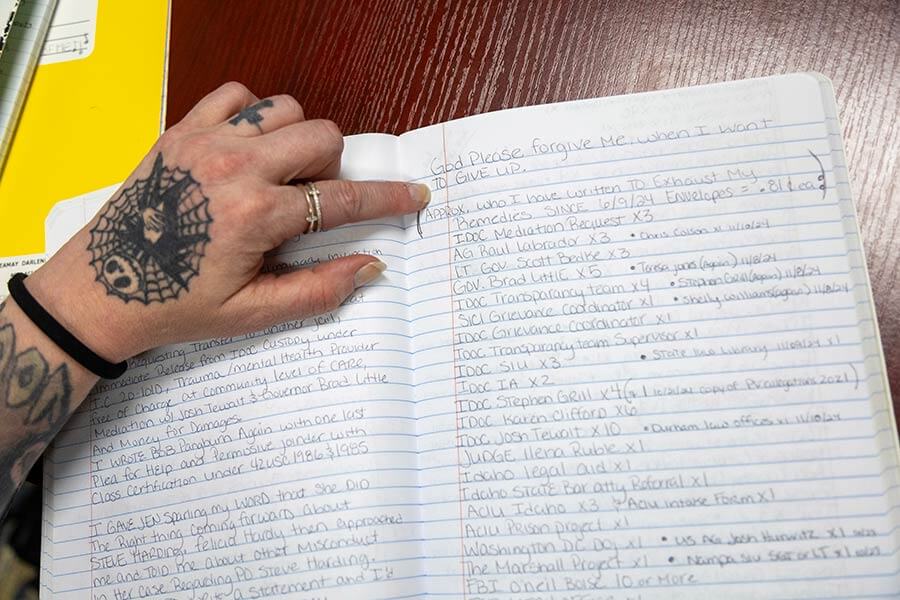 EAMAY DARLEN
Requesting Transfer to another jail,
Immediate Release from IDOC Custody under
I.C. 20-101D, Trauma/mental Health Provider
free of Charge at Community level of CARE,
Mediation w/ Josh Tewalt & Governor Brad Little
And Money for Damages.
I WROTE BOB Pangburn Again with one last
Plea for Help and Permissive joinder with
Class Certification under 42 USC 1986 & 1985
I GAVE JEN Spurling my WORD that she DID
The Right thing coming forward About
STEVE HARDING. Felicia Hardy then approached
me and TOID me about other Misconduct
in Her case Regarding PD Steve Harding.
a Statement and I'd
God Please forgive Me, when I want
TO GIVE UP.
(APPROX. who I have written TO Exhaust My
Remedies SINCE 6/9/24 Envelopes = .81¢ ea:)
IDOC Mediation Request x3
AG Raul Labrador x3 • Chris Colson x1 11/10/24
LT GOV. Scott Bedke x3
GOV. Brad Little x5 • Teresa Jones (again) 11/8/24
IDOC Transparancy team x4 • Stephen Grill (again) 11/8/24
SICI Grievance coordinator x1 • Shelly Williams (again) 11/8/24
IDOC Grievance Coordinator x1
IDOC Transparancy team Supervisor x1
IDOC SIU x3 • State law library x1
IDOC IA x2
IDOC Stephen Grill x4 copy of PV allegations 2021)
IDOC Karen Clifford x6
IDOC Josh Tewalt x10 • Durham law offices x1
JUDGE Ilena Ruble x1
Idaho legal aid x1
Idaho STATE Bar atty Referral x1
ACLU Idaho x3 & Aclu intake Form x1
ACLU Prison Project x1
Washington DC DOJ x1 • US AG Josh Hurwitz x1
The Marshall Project x1 • Nampa SIU SGT or LT x1
FBI O'neil Boise 10 or More